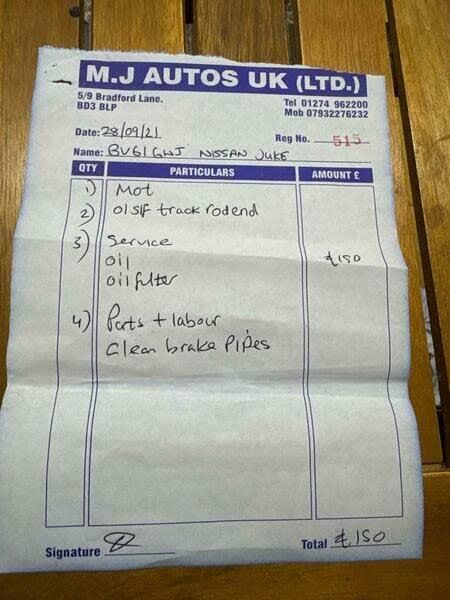 M.J AUTOS UK (LTD.)
5/9 Bradford Lane.
BD3 8LP
Tel 01274 962200
Mob 07932276232
Date: 28/09/21
Reg No. 515
Name: BV61GWJ NISSAN JUKE
QTY PARTICULARS AMOUNT £
1) Mot
2) O/S/F track rodend
3) Service
oil £150
oil filter
4) Parts + labour
Clean brake pipes
Signature
Total £150